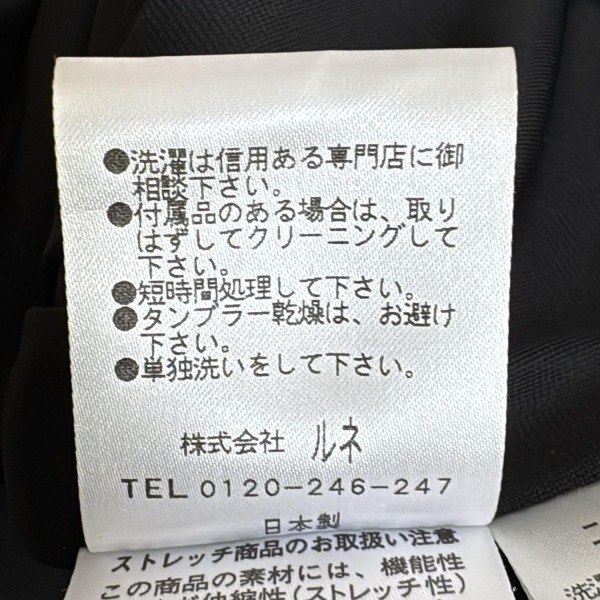 ●洗濯は信用ある専門店に御
相談下さい。
●付属品のある場合は、取り
はずしてクリーニングして
下さい。
●短時間処理して下さい。
●タンブラー乾燥は、お避け
下さい。
●単独洗いをして下さい。
株式会社 ルネ
TEL 0120-246-247
日本製
ストレッチ商品のお取扱い注意
この商品の素材には、機能性
伸縮性(ストレッチ性)